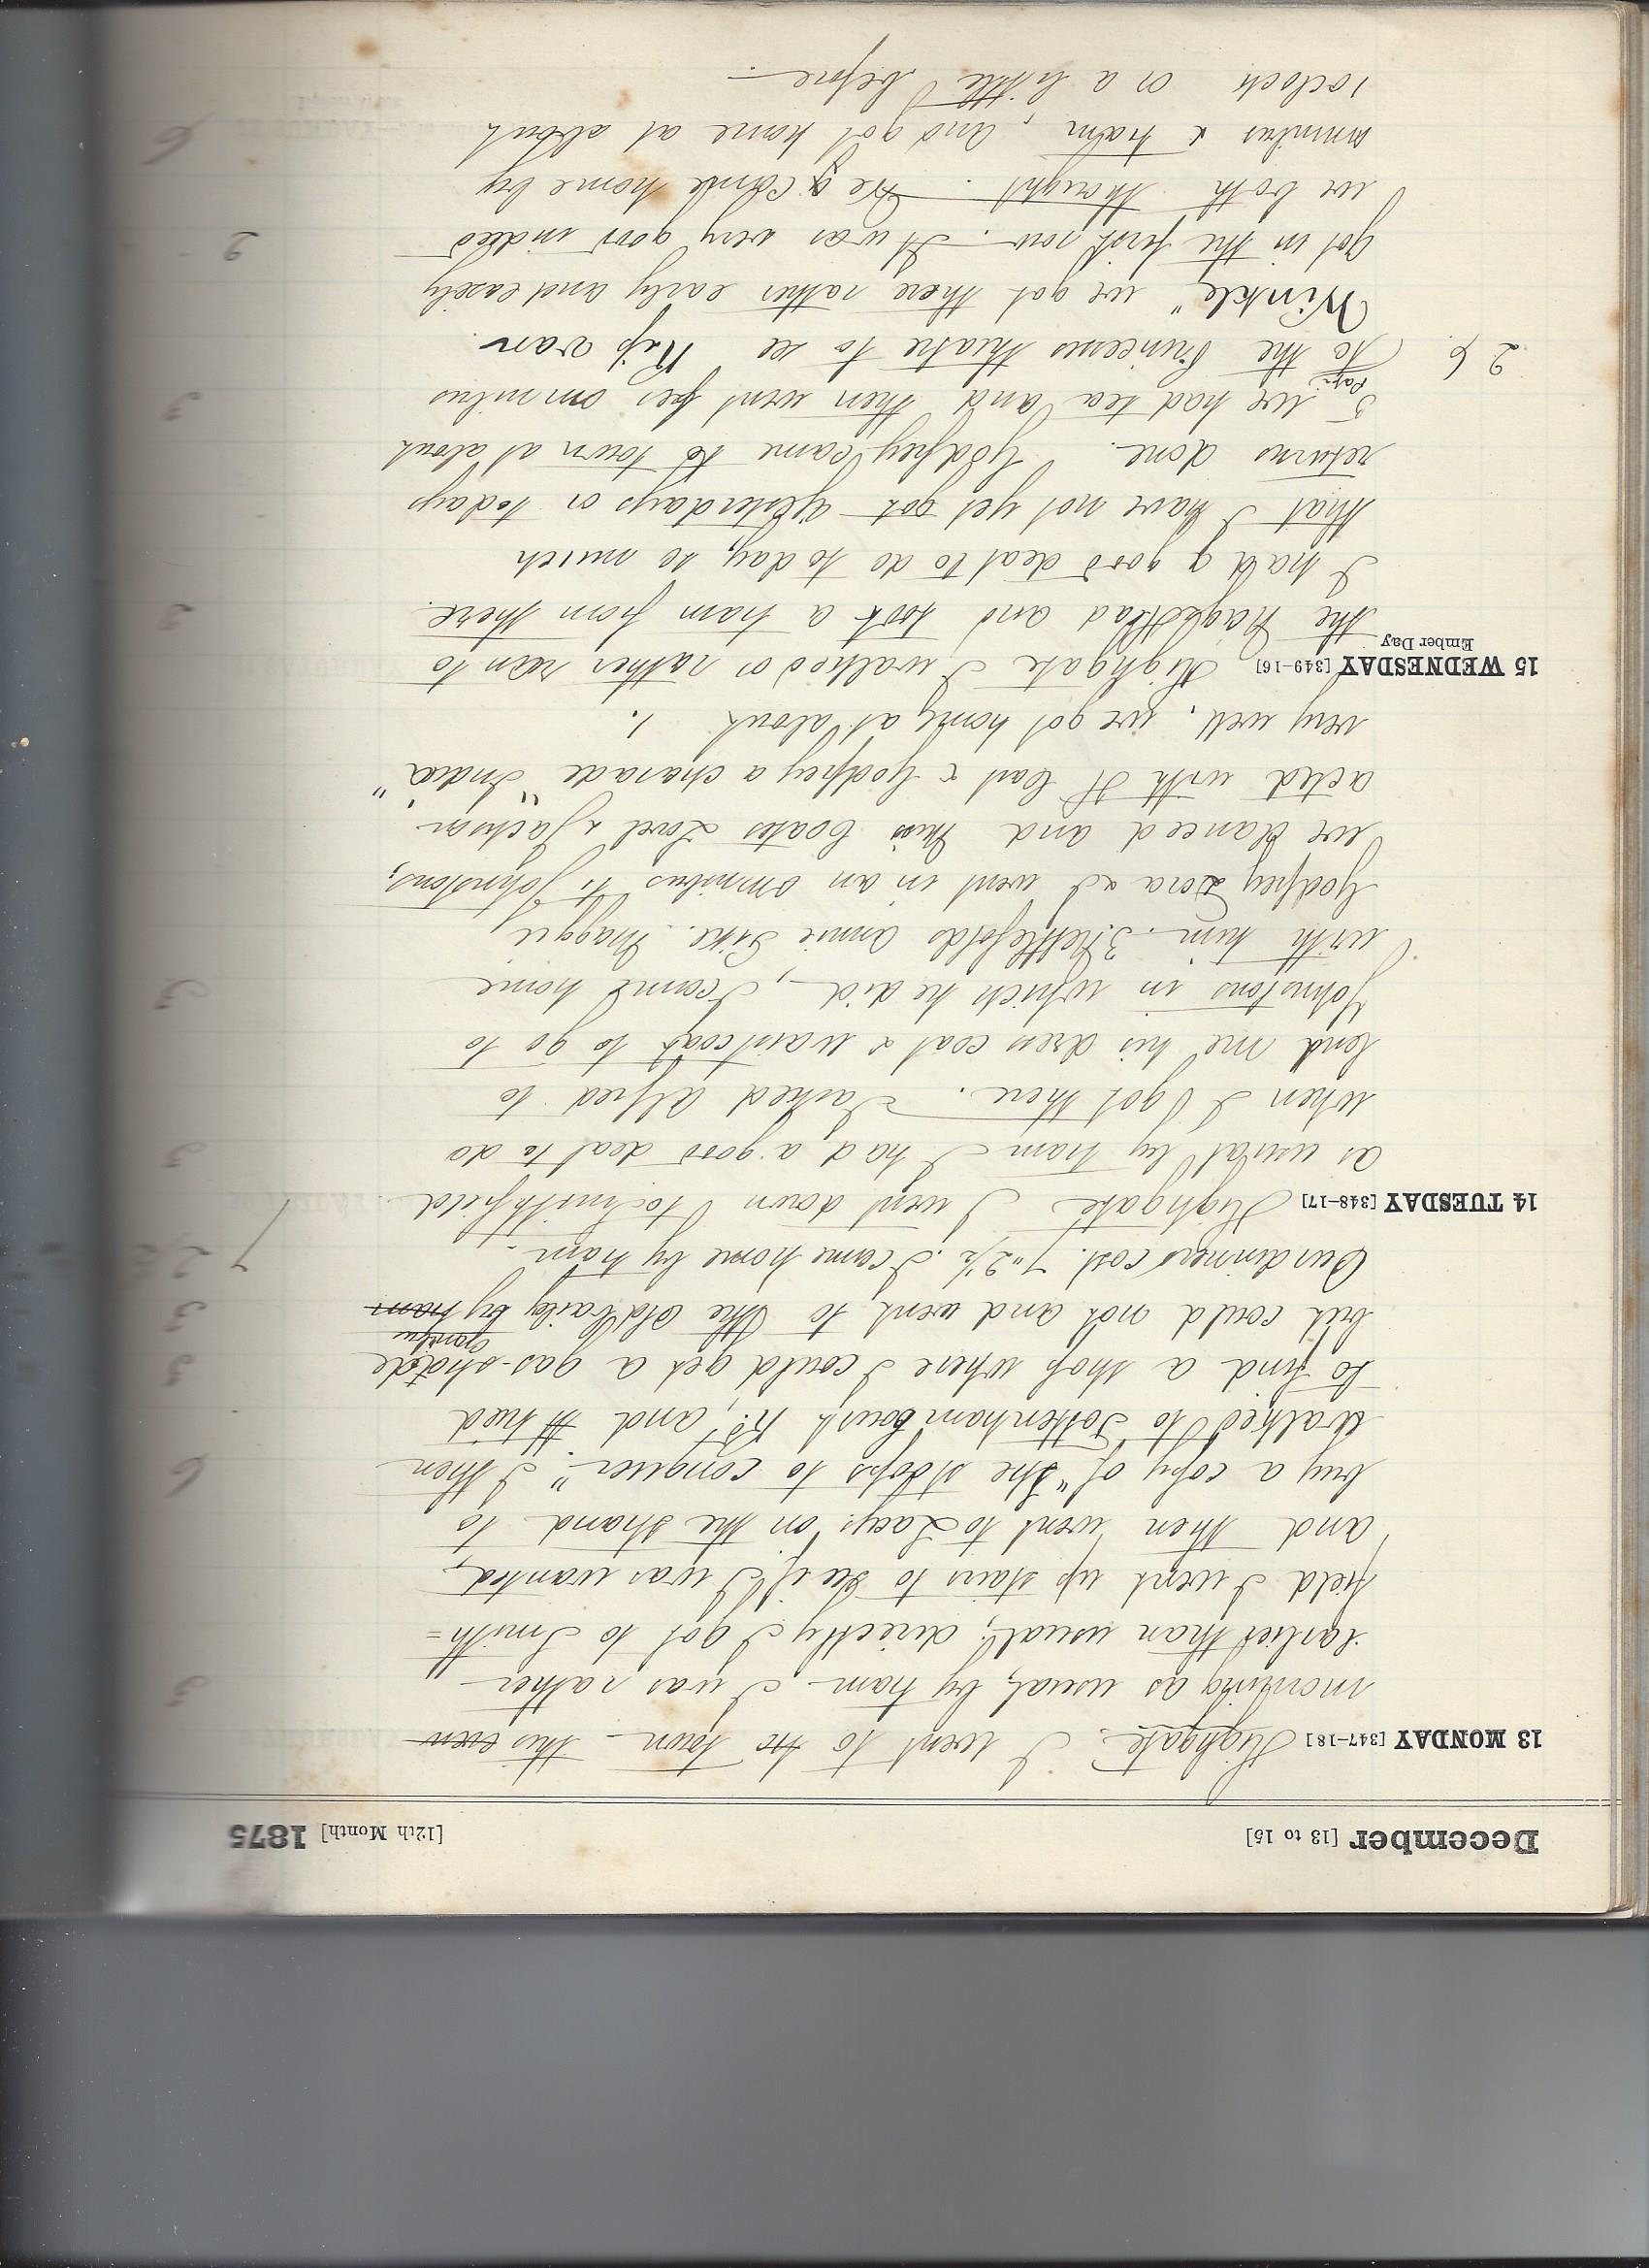 December [13 to 15] [12th Month] 1875
13 MONDAY [347-18] Highgate. I went to to town - this even
morning as usual, by tram. I was rather 3
earlier than usual; directly I got to Smith=
field I went up stairs to see if I was wanted,
and then went to Lacys on the strand to
buy a copy of "She stoops to conquer." I then 6
walked to Tottenham Court Rd, and tried -
to find a shop where I could get a gas-shade 3
but could not and went to the Old Bailey by tram 3
Our dinners cost. 7"2½. I came home by tram. 7 2
14 TUESDAY [348-17] Highgate I went down to Smithfield
as usual by tram I had a good deal to do 3
when I got there. I asked Alfred to
lend me his dress coat & waistcoat to go to
Johnstons in which he did, I came home 3
with him. 3 Nettlefolds Annie Maggie
Godfrey Dora & I went in an omnibus to Johnstons,
we danced and Miss Coates Lovel & Jackson
acted with & Godfrey a charade "India"
very well. we got home at about 1.
15 WEDNESDAY [349-16] Highgate I walked or rather ran to
Ember Day
the Nags Head and took a tram from there. 3
I had a good deal to do today, so much
that I have not yet got yesterdays or todays -
returns done. Godfrey came to town at about
5 we had tea and then went per omnibus 3
Papi
2 6 to the Princess theatre to see "Rip van
Winkle" we got there rather early and easily
got in the first row. It was very good indeed 2 -
we both thought. We came home by
omnibus & tram, and got home at about 6
1 oclock or a little before -